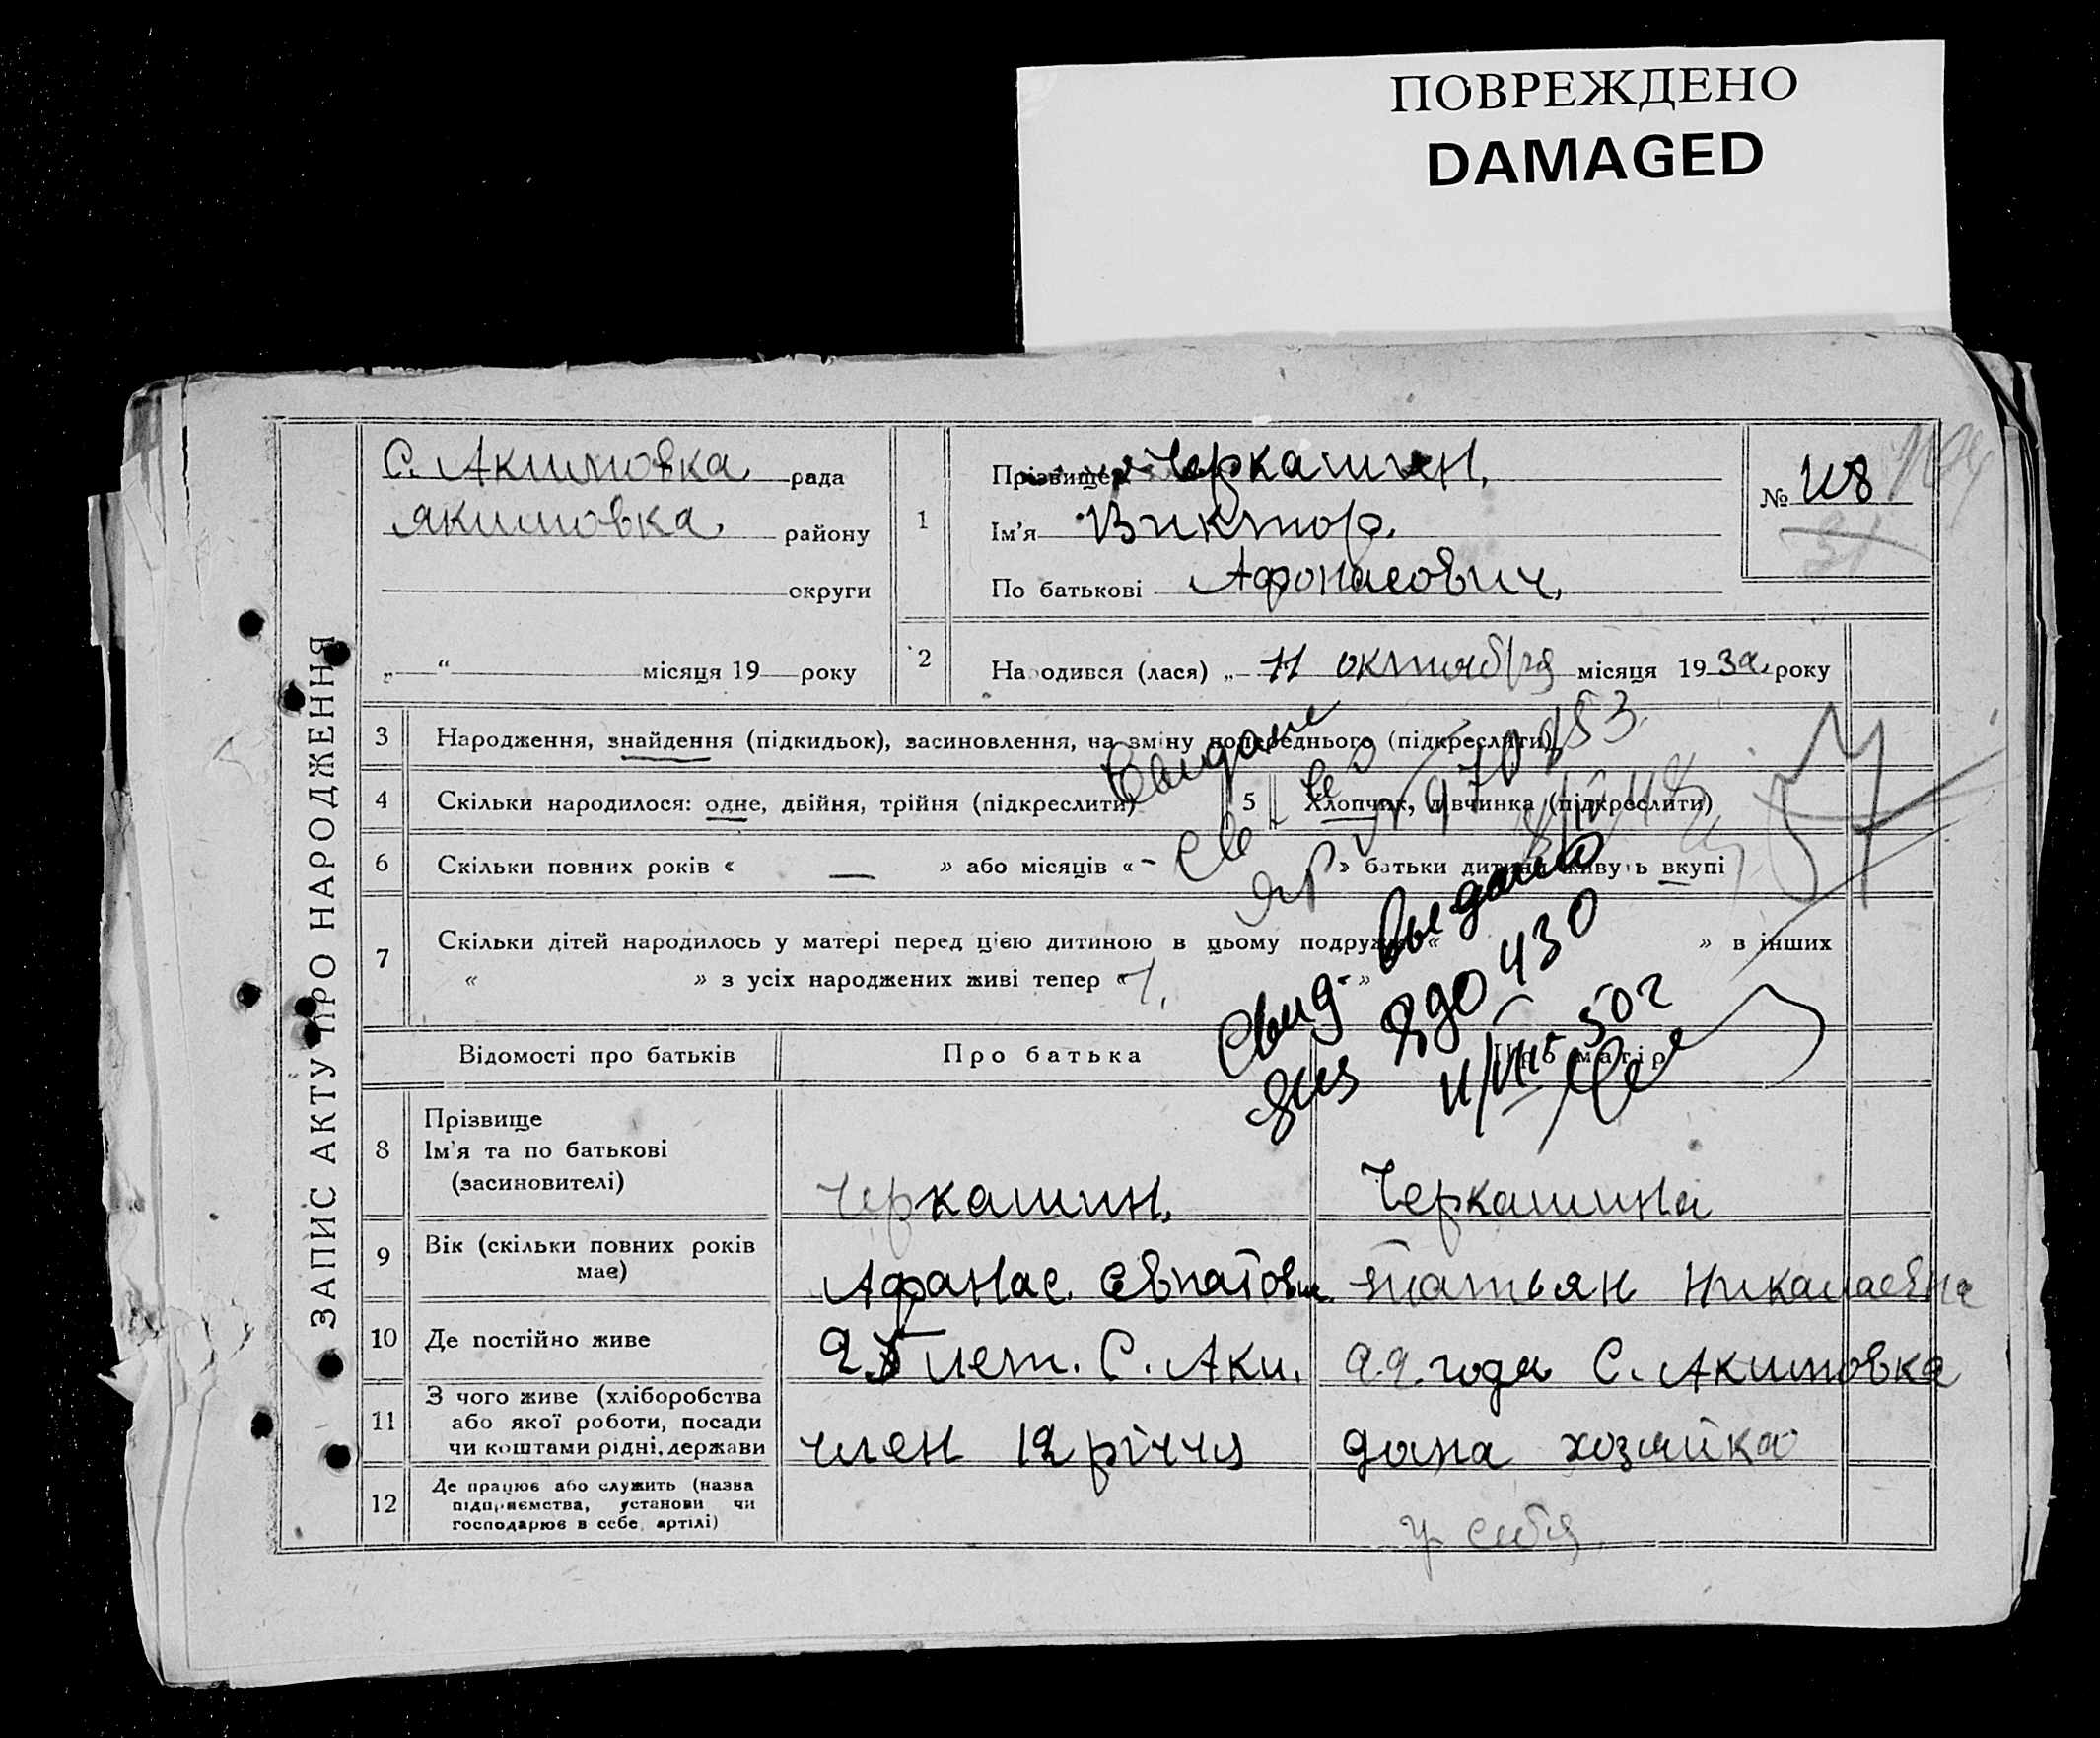 ПОВРЕЖДЕНО
DAMAGED
ЗАПИС АКТУ ПРО НАРОДЖЕННЯ
С. Акимовка рада
Якимовка району
округи
„ “ місяця 19 року
1
Прізвище Черкашин,
Ім'я Виктор.
По батькові Афонасович,
№ 118
2
Народився (лася) „ 11 октября місяця 1932 року
3 Народження, знайдення (підкидьок), засиновлення, на зміну попереднього (підкреслити)
4 Скільки народилося: одне, двійня, трійня (підкреслити)
5 Хлопчик, дівчинка (підкреслити)
6 Скільки повних років « — » або місяців « - » батьки дитини живуть вкупі
7 Скільки дітей народилось у матері перед цією дитиною в цьому подружжі « » в інших
« » з усіх народжених живі тепер « 1, »
Свид. выдано
430
50 г
Відомості про батьків
Про батька
Про матір
8 Прізвище
Ім'я та по батькові
(засиновителі)
Черкашин,
Черкашина
9 Вік (скільки повних років
має)
Афанас.
Татьян Никалаевна
10 Де постійно живе
25 лет. С. Аки.
22 года С. Акимовка
11 З чого живе (хліборобства
або якої роботи, посади
чи коштами рідні, держави
член 12 річчя
дома хозяйка
12 Де працює або служить (назва
підприємства, установи чи
господарює в себе, артілі)
у себя